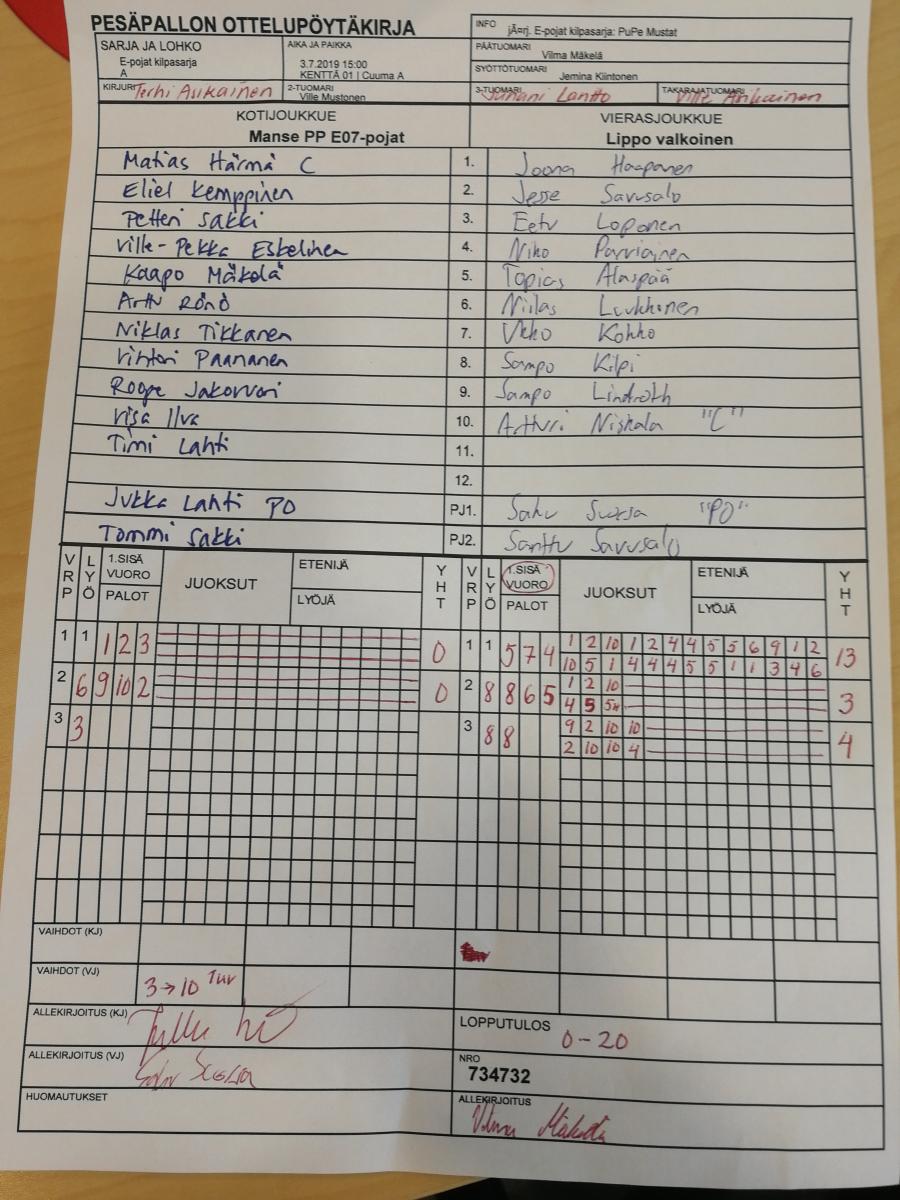 PESÄPALLON OTTELUPÖYTÄKIRJA
INFO jÃ¤rj. E-pojat kilpasarja: PuPe Mustat
SARJA JA LOHKO
E-pojat kilpasarja
A
AIKA JA PAIKKA
3.7.2019 15:00
KENTTÄ 01 | Cuuma A
PÄÄTUOMARI Vilma Mäkelä
SYÖTTÖTUOMARI Jemina Kiintonen
KIRJURI Terhi Asikainen
2-TUOMARI
Ville Mustonen
3-TUOMARI Juhani Lantto
TAKARAJATUOMARI Ville Asikainen
KOTIJOUKKUE
Manse PP E07-pojat
VIERASJOUKKUE
Lippo valkoinen
Matias Härmä C 1. Joona Haapanen
Eliel Kemppinen 2. Jesse Savusalo
Petteri Sakki 3. Eetu Loponen
Ville-Pekka Eskelinen 4. Niko Parviainen
Kaapo Mäkelä 5. Topias Alaspää
Arttu Rönö 6. Niilas Luukkonen
Niklas Tikkanen 7. Ukko Kohko
Vihtori Paananen 8. Sampo Kilpi
Roope Jakorvari 9. Sampo Lindroth
Visa Ilva 10. Artturi Niskala "C"
Timi Lahti 11.
12.
Jukka Lahti PO PJ1. Saku Suorsa "PO"
Tommi Sakki PJ2. Santtu Savusalo
VRP LYÖ 1.SISÄ VUORO PALOT JUOKSUT ETENIJÄ LYÖJÄ YHT VRP LYÖ 1.SISÄ VUORO PALOT JUOKSUT ETENIJÄ LYÖJÄ YHT
1 1 1 2 3 0 1 1 5 7 4 1 2 10 1 2 4 4 5 5 6 9 1 2 13
10 5 1 4 4 4 5 5 1 1 3 4 6
2 6 9 10 2 0 2 8 8 6 5 1 2 10 3
4 5 5*
3 3 3 8 8 9 2 10 10 4
2 10 10 4
VAIHDOT (KJ)
VAIHDOT (VJ) 3→10 Tur
ALLEKIRJOITUS (KJ)
LOPPUTULOS 0-20
ALLEKIRJOITUS (VJ) Saku Suorsa
NRO
734732
HUOMAUTUKSET
ALLEKIRJOITUS
Vilma Mäkelä